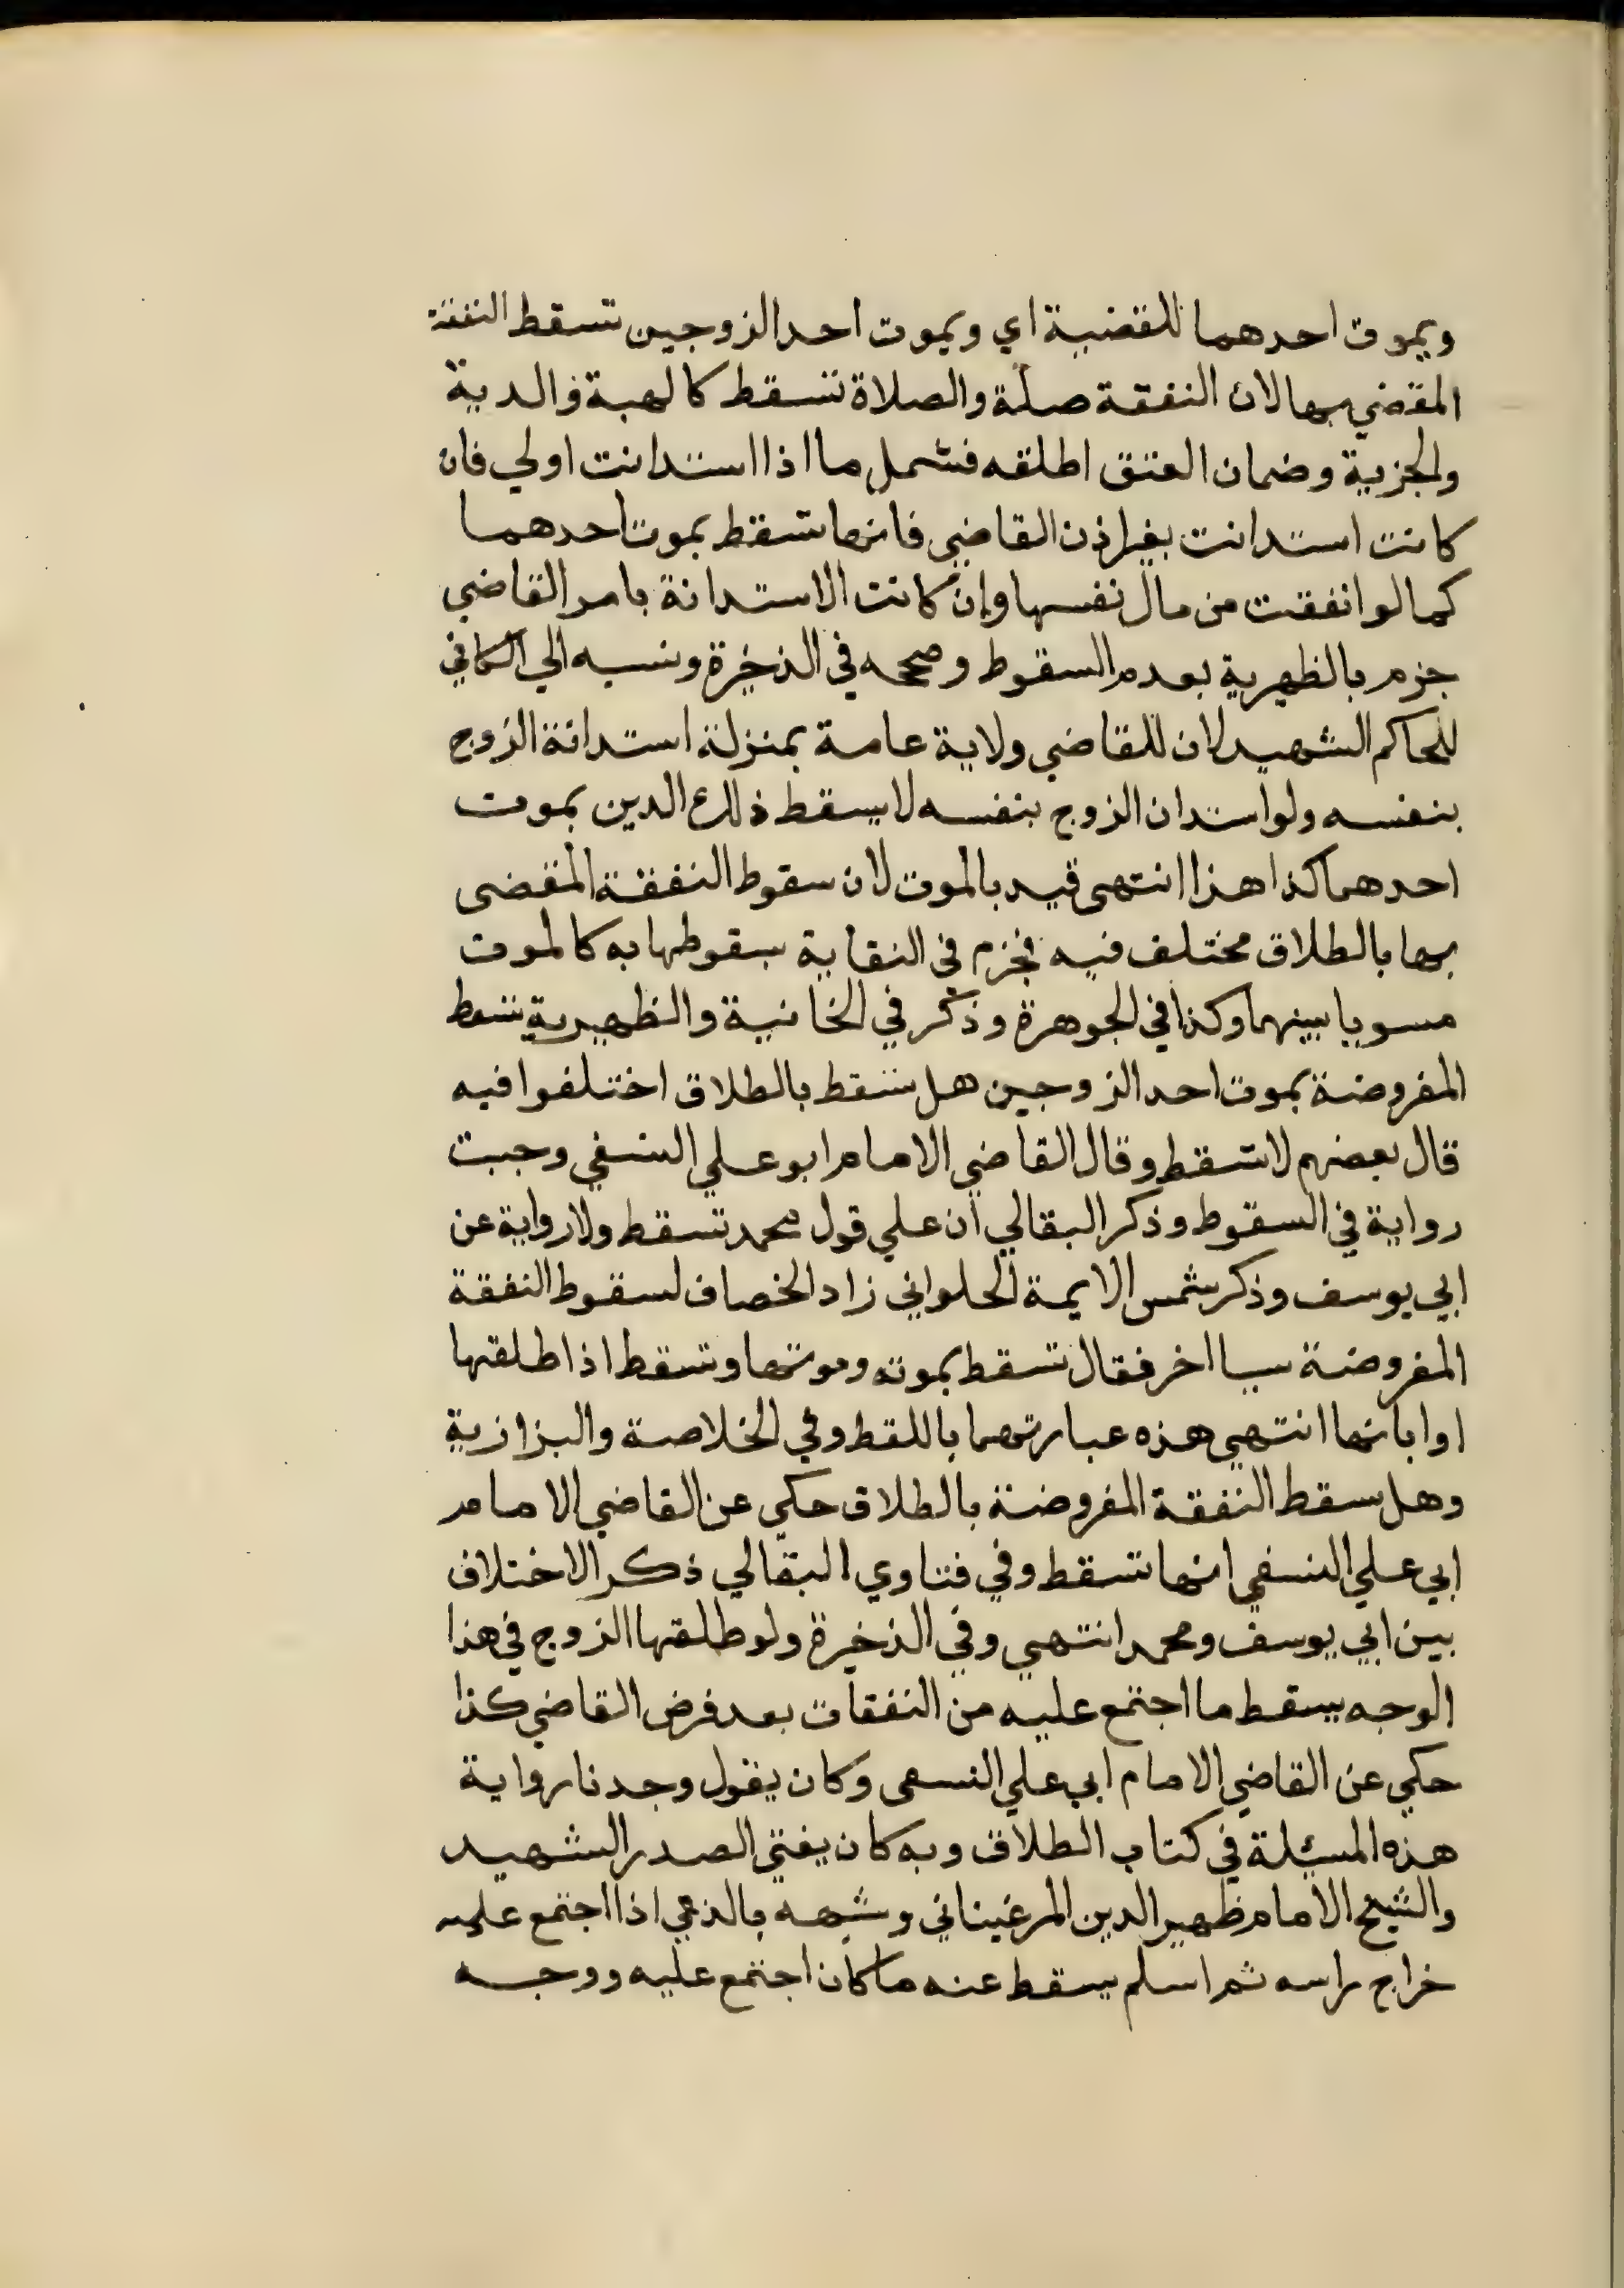 ويموت احدهما للقضية اي ويموت احد الزوجين تسقط النفقة
المقضي بها لان النفقة صلة والصلاة تسقط كالهبة والدية
والجزية وضمان العتق اطلقه فشمل ما اذا استدانت اولي فان
كانت استدانت بغير اذن القاضي فانها تسقط بموت احدهما
كما لو انفقت من مال نفسها وإن كانت الاستدانة بامر القاضي
جزم بالظهيرية بعدم السقوط وصححه في الذخيرة ونسبه الي الكافي
للحاكم الشهيد لان للقاضي ولاية عامة بمنزلة استدانة الزوج
بنفسه ولو استدان الزوج بنفسه لا يسقط ذلك الدين بموت
احدهما كذا هذا انتهى قيد بالموت لان سقوط النفقة المقضى
بها بالطلاق مختلف فيه فجزم في النقاية بسقوطها به كالموت
مسويا بينهما وكذا في الجوهرة وذكر في الخانية والظهيرية تسقط
المفروضة بموت احد الزوجين هل تسقط بالطلاق اختلفوا فيه
قال بعضهم لا تسقط وقال القاضي الامام ابو علي النسفي وجبت
رواية في السقوط وذكر البقالي ان علي قول محمد تسقط ولا رواية عن
ابي يوسف وذكر شمس الايمة الحلواني زاد الخصاف لسقوط النفقة
المفروضة سببا اخر فقال تسقط بموته وموتها وتسقط اذا طلقتها
او ابانها انتهي هذه عبارتهما باللقط وفي الخلاصة والبزازية
وهل سقط النفقة المفروضة بالطلاق حكي عن القاضي الامام
ابي علي النسفي انها تسقط وفي فتاوي البقالي ذكر الاختلاف
بين ابي يوسف ومحمد انتهي وفي الذخيرة ولو طلقها الزوج في هذا
الوجه يسقط ما اجتمع عليه من النفقات بعد فرض القاضي كذا
حكي عن القاضي الامام ابي علي النسفى وكان يقول وجدنا رواية
هذه المسئلة في كتاب الطلاق وبه كان يفتي الصدر الشهيد
والشيخ الامام ظهير الدين المرغيناني وشبهه بالذمي اذا اجتمع عليه
خراج راسه ثم اسلم يسقط عنه ما كان اجتمع عليه ووجه